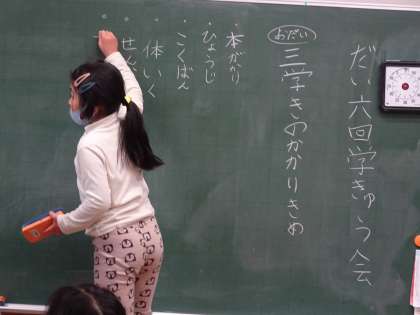 だい六回学きゅう会
わだい
三学きのかかりきめ
・本がかり
・ひょうじ
・こくばん
・体いく